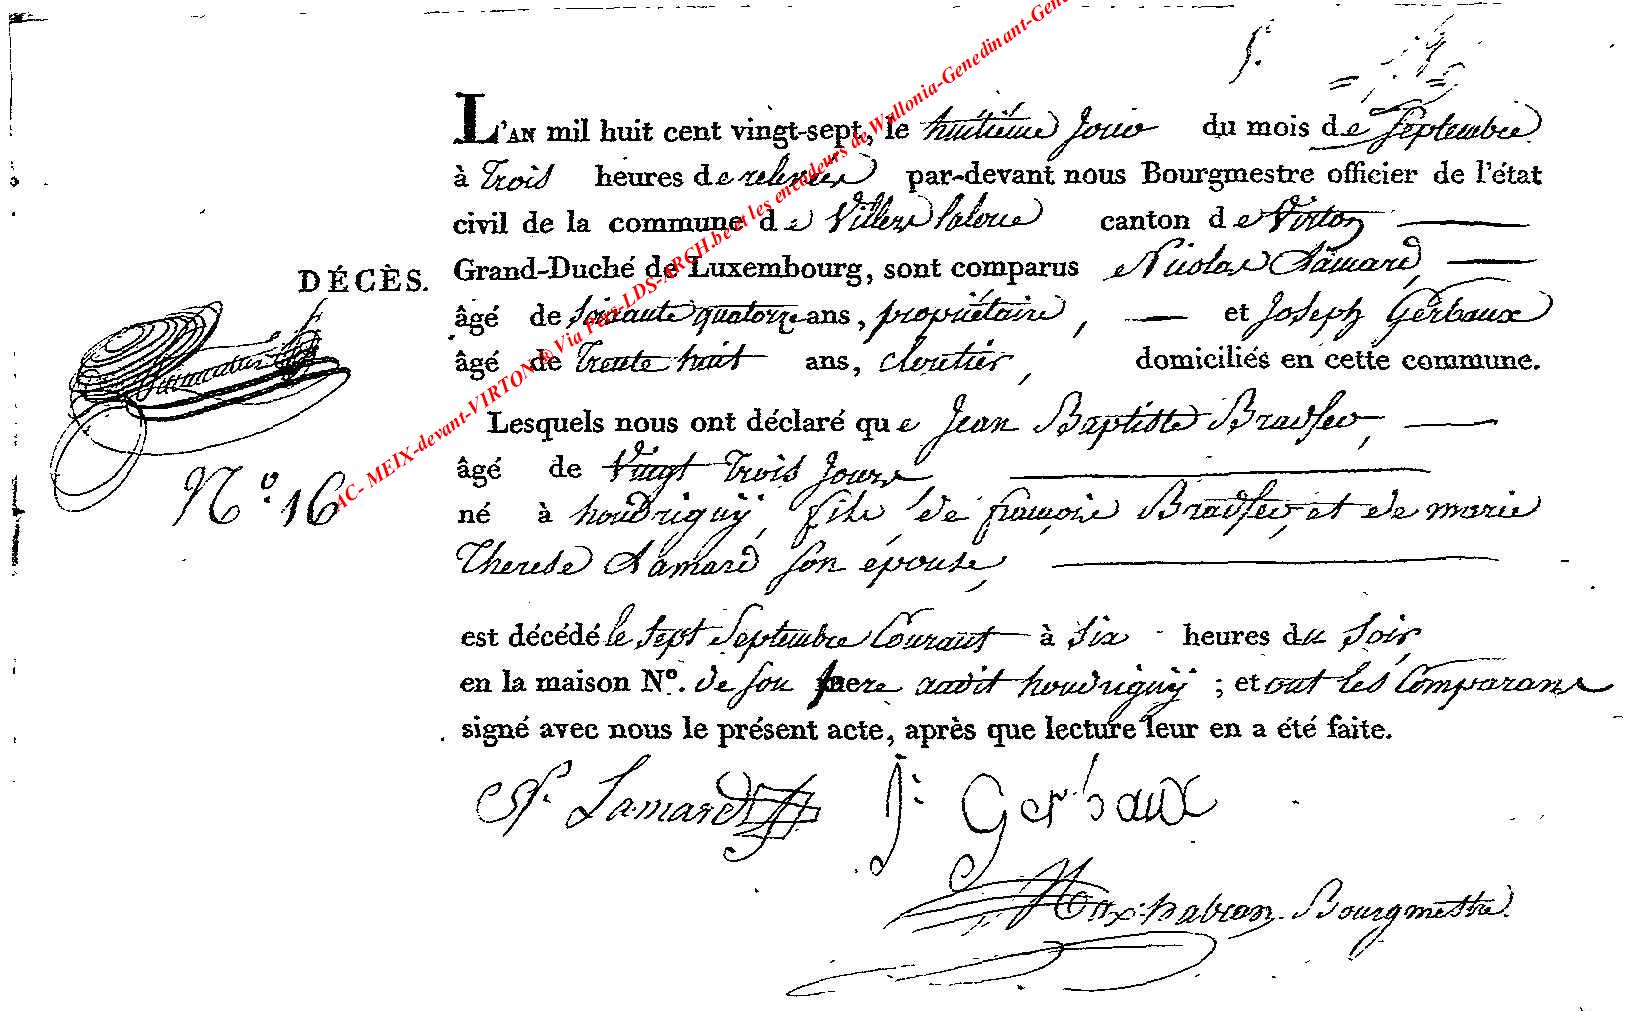 L'AN mil huit cent vingt-sept, le huitième Jour du mois de Septembre
à Trois heures de relevée par-devant nous Bourgmestre officier de l'état
civil de la commune de Villers laloue canton de Virton
Grand-Duché de Luxembourg, sont comparus Nicolas Lamard,
DÉCÈS.
âgé de Soixante quatorze ans, propriétaire, et Joseph Gerbaux
âgé de Trente huit ans, cloutier, domiciliés en cette commune.
Lesquels nous ont déclaré que Jean Baptiste Bradfer,
âgé de Vingt Trois Jours
N.º 16
né à houdrigny, fils de françois Bradfer, et de marie
Therese Lamard son épouse,
est décédé le sept Septembre Courant à Six heures du Soir,
en la maison Nº. de son pere audit houdrigny ; et ont les Comparans
signé avec nous le présent acte, après que lecture leur en a été faite.
N. Lamard J. Gerbaux
Bourgmestre
AC- MEIX-devant-VIRTON ® Via Pery-LDS-ARCH.be et les encodeurs de Wallonia-Genedinant-Gene